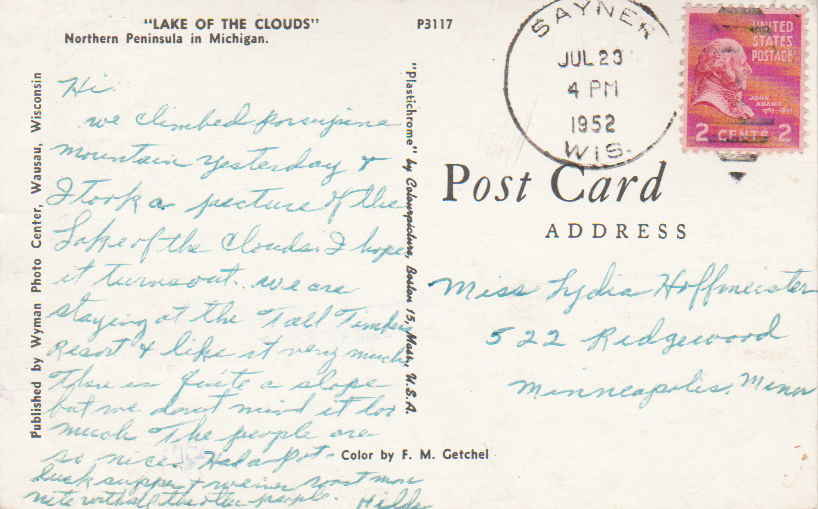 "LAKE OF THE CLOUDS"
Northern Peninsula in Michigan.
P3117
Published by Wyman Photo Center, Wausau, Wisconsin
Hi
we climbed Porcupine
mountain yesterday &
I took a picture of the
Lake of the Clouds. I hope
it turns out. we are
staying at the Tall Timber
Resort & like it very much
There is quite a slope
but we dont mind it too
much The people are
so nice. Had a pot-
luck supper & weiner roast mon
nite with all the other people. Hilda
"Plastichrome" by Colourpicture, Boston 15, Mass., U.S.A.
SAYNER
JUL 23
4 PM
1952
WIS.
UNITED
STATES
POSTAGE
JOHN
ADAMS
2 CENTS 2
Post Card
ADDRESS
Miss Lydia Hoffmeister
522 Ridgewood
Minneapolis, Minn
Color by F. M. Getchel